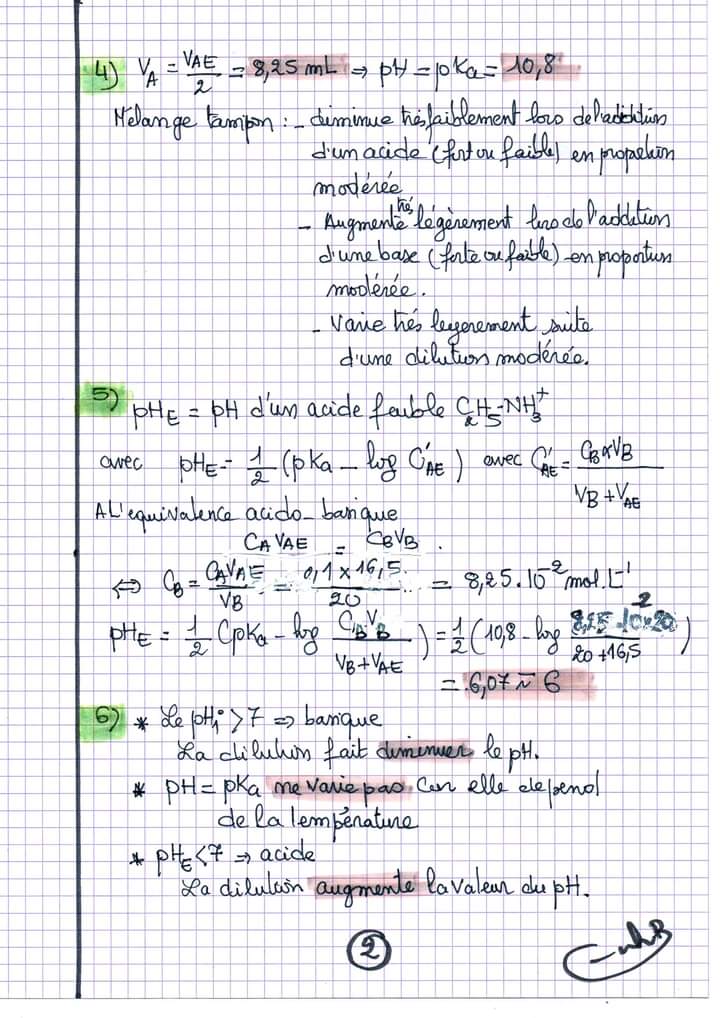 4) VA = VAE/2 = 8,25 mL ⇒ pH = pKa = 10,8
Mélange tampon : - diminue très faiblement lors de l'addition
d'un acide (fort ou faible) en proportion
modérée
- Augmente très légèrement lors de l'addition
d'une base (forte ou faible) en proportion
modérée.
- Varie très légerement suite
d'une dilution modérée.
5) pHE = pH d'un acide faible C2H5-NH3+
avec pHE = 1/2 (pKa - log C'AE) avec C'AE = CB×VB / VB+VAE
A L'equivalence acido-basique
CAVAE = CBVB.
⇔ CB = CAVAE/VB = 0,1 × 16,5/20 = 8,25.10-2 mol.L-1
pHE = 1/2 (pKa - log CBVB/VB+VAE) = 1/2 (10,8 - log 8,25.10-2×20/20+16,5)
= 6,07 ≈ 6
6) * Le pHi > 7 ⇒ basique
La dilution fait diminuer le pH.
* pH = pKa ne varie pas Car elle depend
de la température
* pHE < 7 ⇒ acide
La dilution augmente la valeur du pH.
2